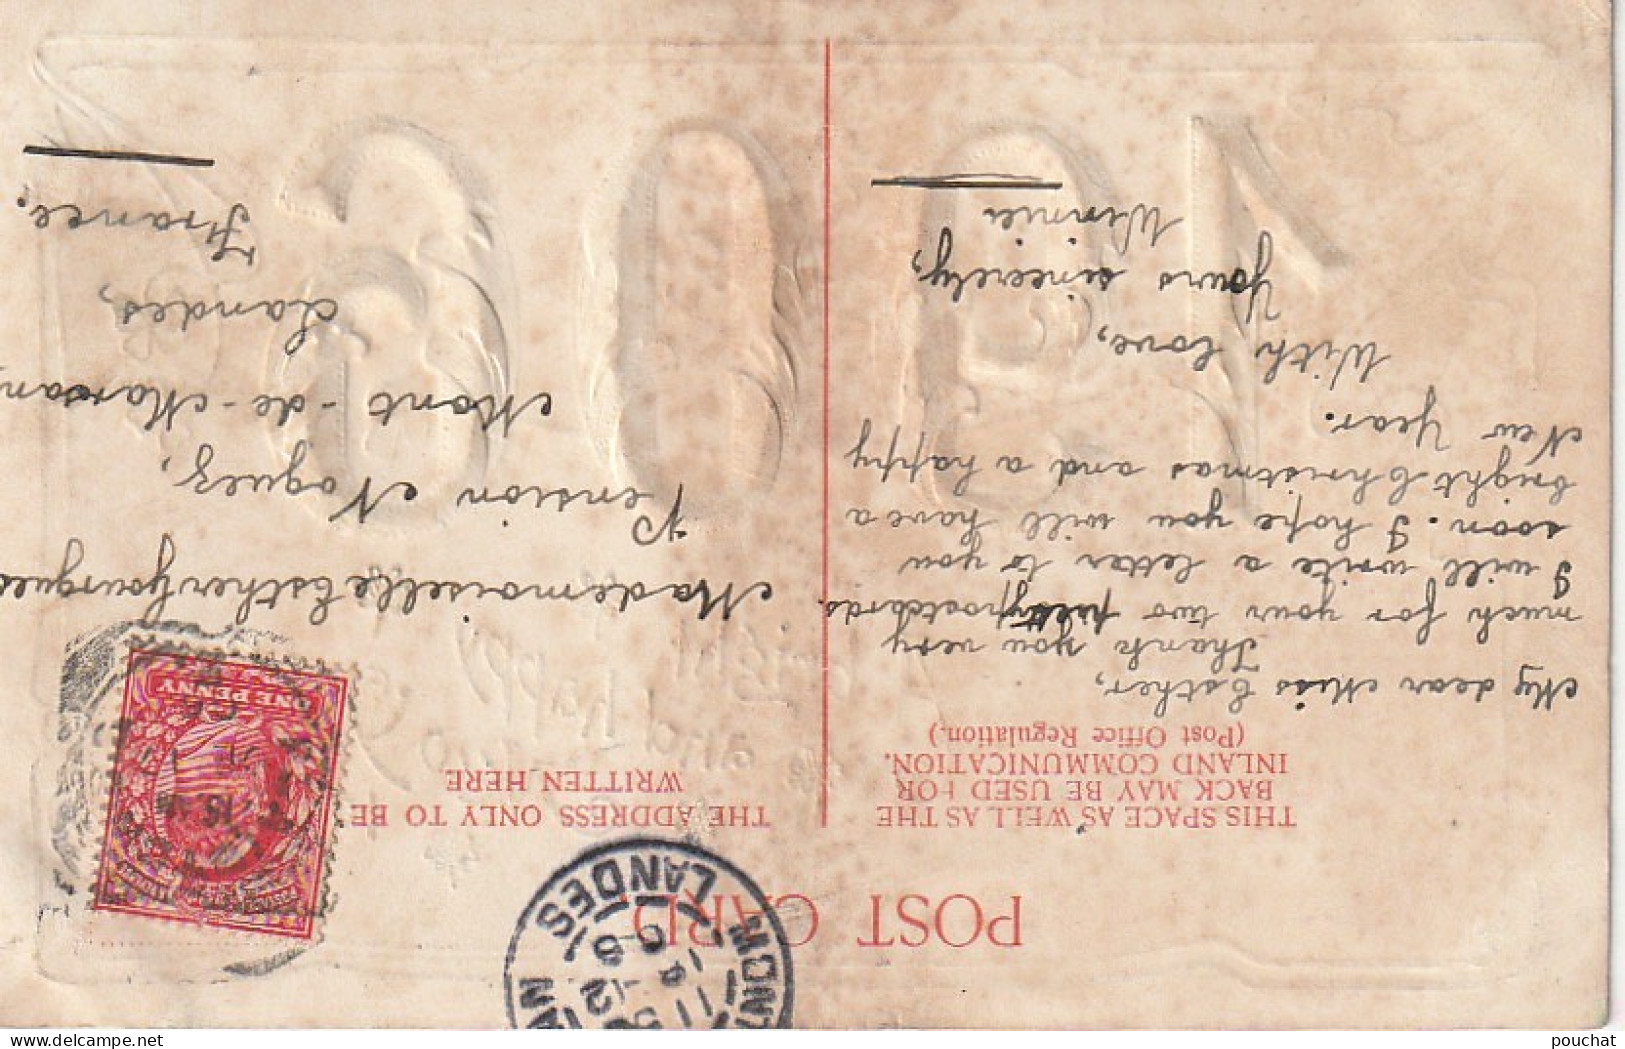 POST CARD
THIS SPACE AS WELL AS THE
BACK MAY BE USED FOR
INLAND COMMUNICATION.
(Post Office Regulation.)
THE ADDRESS ONLY TO BE
WRITTEN HERE
My dear Miss Esther,
Thank you very
much for your two pretty postcards.
I will write a letter to you
soon. I hope you will have a
bright Christmas and a happy
New Year.
With love,
Yours sincerely,
Winnie
Mademoiselle Esther
Pension Noguez,
Mont-de-Marsan,
Landes,
France.
ONE PENNY
MONT
LANDES
1906
and happy
pouchat